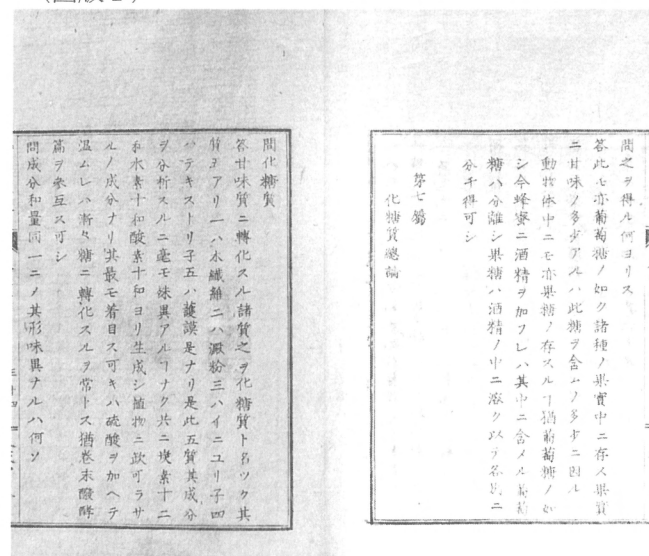 問之ヲ得ル何ヨリス
答此モ亦葡萄糖ノ如ク諸種ノ果實中ニ存ス果實
ニ甘味ノ多少アルハ此糖ヲ含ムノ多少ニ因ル
動物体中ニモ亦果糖ノ存スルヿ猶葡萄糖ノ如
シ今蜂蜜ニ酒精ヲ加フレハ其中ニ含メル葡萄
糖ハ分離シ果糖ハ酒精ノ中ニ溶ク以テ各別ニ
分チ得可シ
第七篇
化糖質總論
問化糖質
答甘味質ニ轉化スル諸質之ヲ化糖質ト名ツク其
質五アリ一ハ木纖維二ハ澱粉三ハイニユリ子四
ハデキストリ子五ハ護謨是ナリ是此五質其成分
ヲ分析スルニ毫モ殊異アルヿナク共ニ炭素十二
和水素十和酸素十和ヨリ生成シ植物ニ欧可ラサ
ルノ成分ナリ其最モ着目ス可キハ硫酸ヲ加ヘテ
温ムレハ漸々糖ニ轉化スルヲ常トス猶巻末醗酵
篇ヲ參互ス可シ
問成分和量同一ニメ其形味異ナルハ何ソ